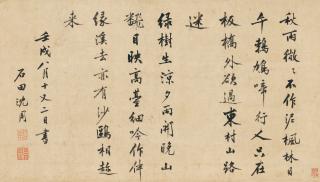 秋雨微々不作泥楓林日
午鵓鳩啼行人只在
板橋外欲過東村山路
迷
綠樹生涼夕雨開晚山
日映高臺細吟作伴
緣溪去亦有沙鷗相趁
来
壬戌八月十又二日書
石田沈周